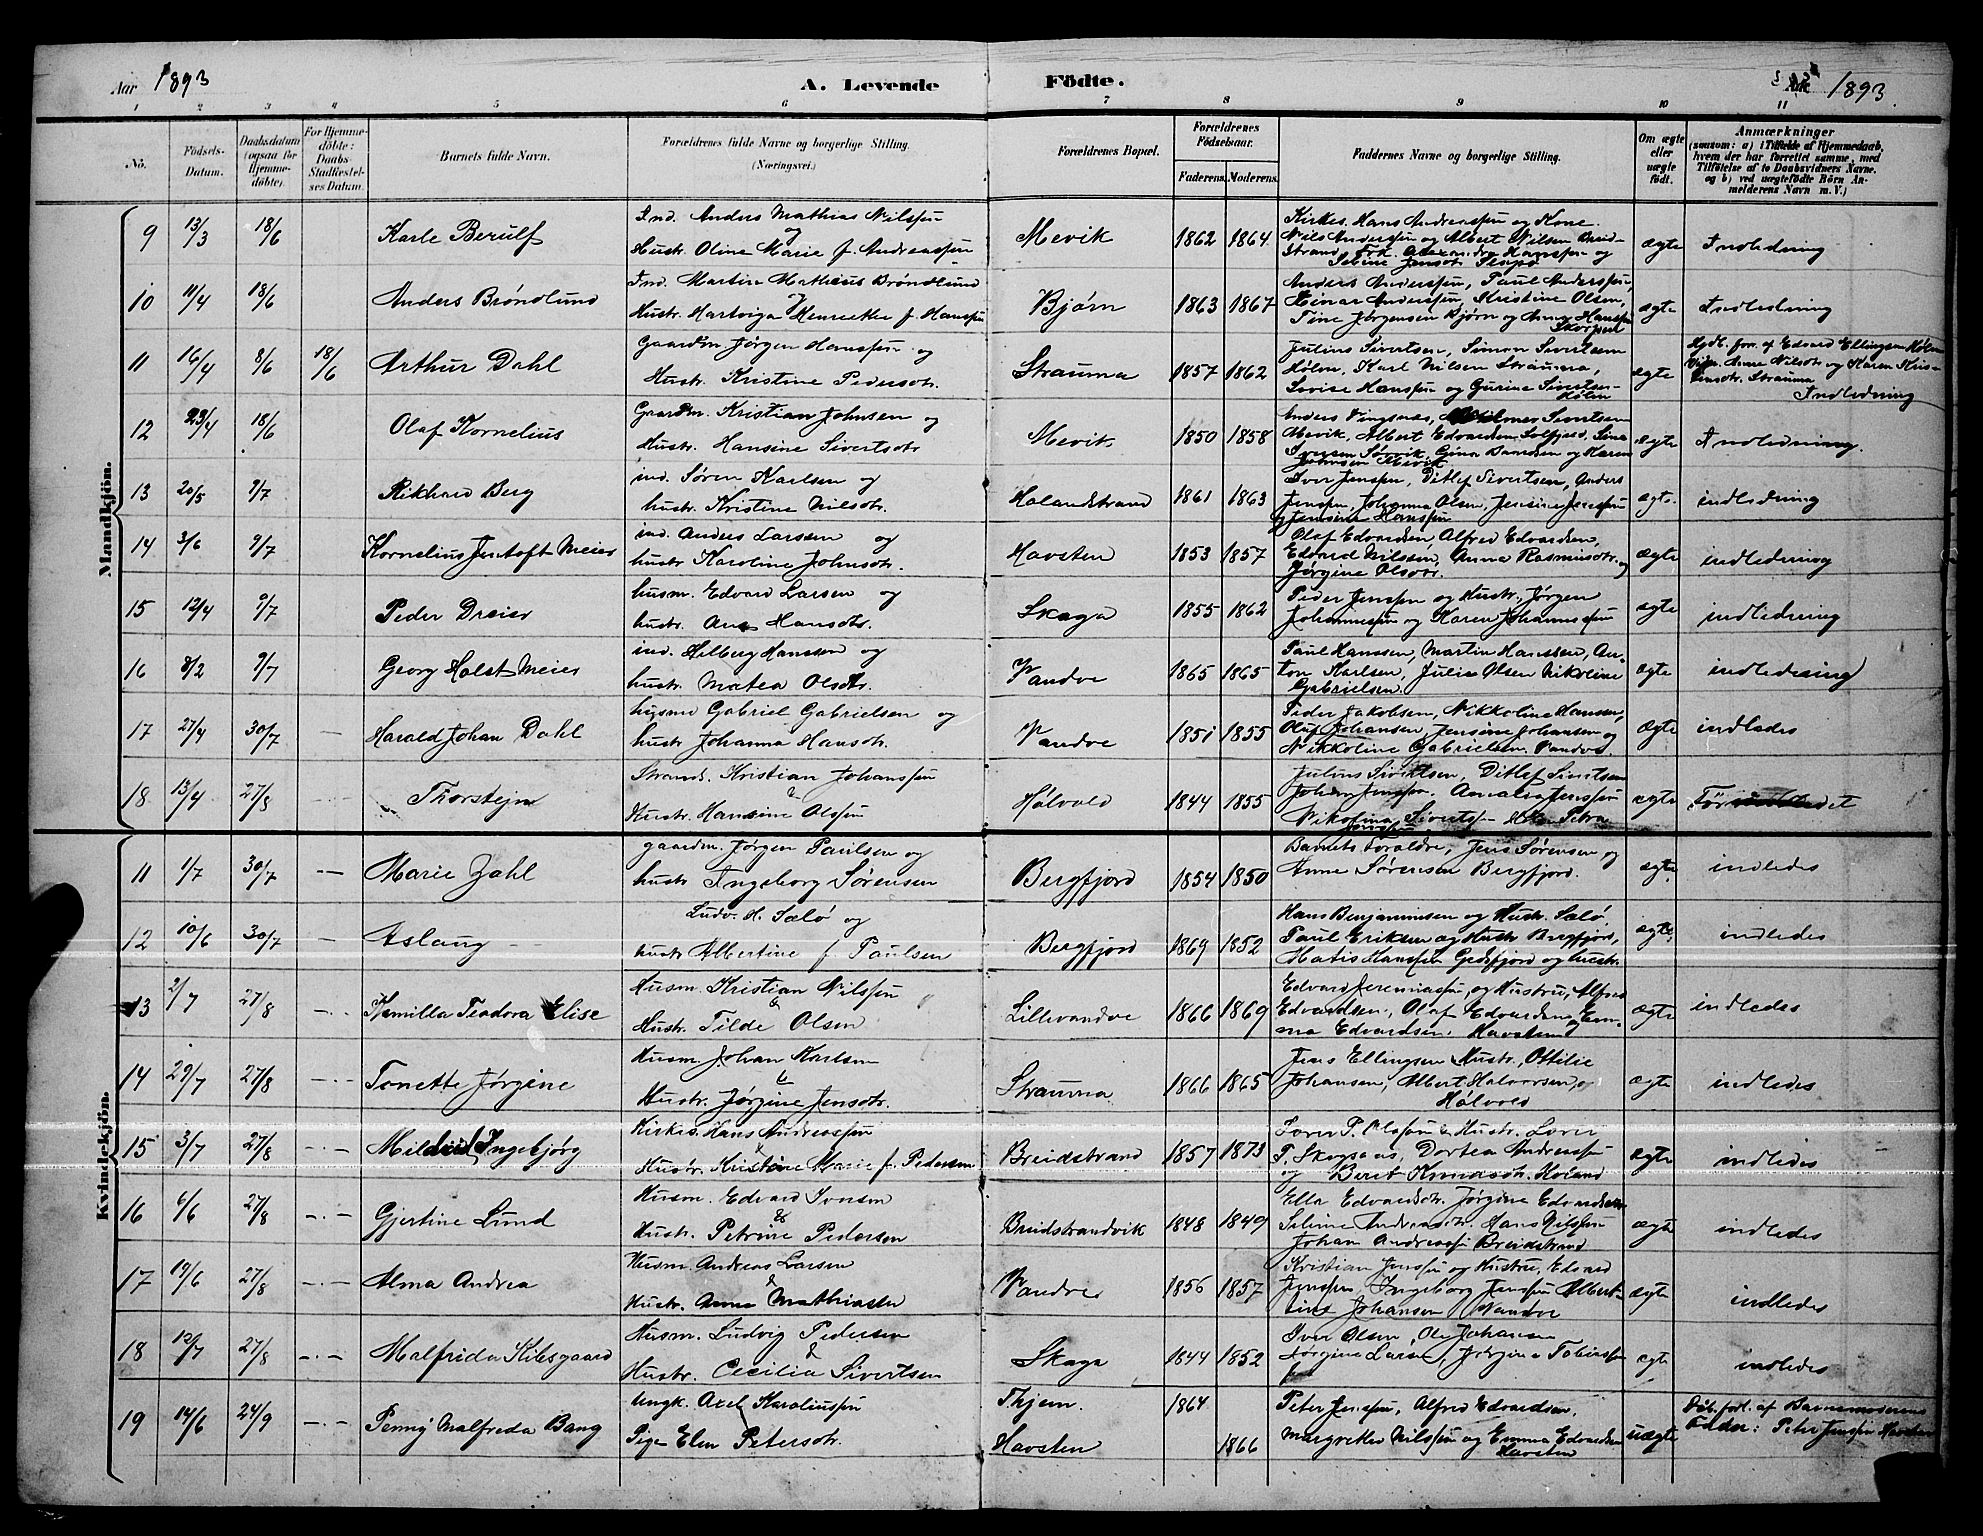 Aar 1893
A. Levende Födte.
Aar 1893.
1 2 3 4 5 6 7 8 9 10 11
No.
Födsels-
Datum.
Daabsdatum
(ogsaa for
Hjemme-
döbte).
For Hjemme-
döbte:
Daabs-
Stadfæstel-
ses Datum.
Barnets fulde Navn.
Forældrenes fulde Navne og borgerlige Stilling.
(Næringsvei.)
Forældrenes Bopæl.
Forældrenes
Födselsaar.
Faderens. Moderens.
Faddernes Navne og borgerlige Stilling.
Om ægte
eller
uægte
födt.
Anmærkninger
(saasom: a) i Tilfælde af Hjemmedaab,
hvem der har forrettet samme, med
Tilföielse af to Daabsvidners Navne,
og b) ved uægtefödte Börn An-
melderens Navn m. V.)
Mandkjön.
9 13/3 18/6 Karle Berulf
Ind. Anders Mathias Nilssen
og
Hustr. Oline Marie f. Andreassen
Mevik 1862 1864
Kirkes. Hans Andreassen og Kone
Nils Anderssen og Albert Nilsen Breid-
strand, Frk. Alexandra Hanssen og
ægte Indledning
10 11/4 18/6 Anders Bröndlund
Ind. Martin Mathæus Bröndlund
og
Hustr. Hartviga Henrikke f. Hanssen
Bjørn 1863 1867
Anders Anderssen, Paul Anderssen,
Einar Anderssen, Kristine Olsen,
Tine Jørgensen Bjørn og Anna Hanssen
Skorpen
ægte Indledning
11 16/4 8/6 18/6 Arthur Dahl
Gaardm. Jørgen Hanssen og
Hustr. Kristine Pedersdtr.
Strauma 1857 1862
Julius Sivertsen, Simon Sivertsen
Hølen, Karl Nilsen Strauma,
Lovise Hanssen og Gurine Sivertsen
Hølen
ægte
Hjdb. forr. af Edvard Ellingsen Hølen
Vidn. Anne Nilsdtr. og Karen Kris-
tensdtr. Strauma
Indledning
12 23/4 18/6 Olaf Kornelius
Gaardm. Kristian Johnsen og
Hustr. Hansine Sivertsdtr
Mevik 1850 1858
Mevik, Albert Edvardsen Solfjord, Sina
Iversen Sørvik, Gina Baardsen og Karen
Johnsen Mevik
ægte Indledning.
13 20/5 9/7 Rikhard Berg
ind. Søren Karlsen og
hustr. Kristine Nilsdtr.
Holandstrand 1861 1863
Iver Jenssen, Ditlef Sivertsen, Anders
Jenssen, Johanna Olsen, Jensine Jenssen
og Jensine Hanssen
ægte. indledning
14 3/6 9/7 Kornelius Jentoft Meier
ind. Anders Larsen og
hustr Karoline Johnsdtr.
Havsten 1853 1857
Olaf Edvardsen Alfred Edvardsen,
Edvard Nilssen, Anna Rasmusdtr. og
Jørgine Olsdtr.
ægte indledning
15 12/4 9/7 Peder Dreier
husm. Edvard Larsen og
hustr. Ane Hansdtr.
Skaga 1855 1862
Peder Jenssen og Hustr., Jørgen
Johannessen og Karen Johannessen
ægte indledning
16 8/2 9/7 Georg Holst Meier
ind. Hilberg Hanssen og
hustr. Matea Olsdtr.
Vandve 1865 1865
Paul Hanssen, Martin Hanssen, An-
ton Karlsen, Julie Olsen Nikoline
Gabrielsen.
ægte indledning
17 27/4 30/7 Harald Johan Dahl
husmd Gabriel Gabrielsen og
hustr Johanna Hansdtr.
Vandve 1851 1855
Peder Jakobsen, Nikkoline Hansen,
Oluf Johansen, Jensine Johansen og
Nikkoline Gabrielsen. Vandve.
ægte indledes
18 13/4 27/8 Thorstejn
Strands. Kristian Johanssen
&
Hustr. Hansine Olssen
Hölvold 1844 1855
Julius Sivertsen, Ditlef Sivertsen
Johan Jenssen. Amalia Jenssen
Nikolina Sivertsen
ægte
Kvindekjön.
11 1/7 30/7 Marie Zahl
gaardm. Jørgen Paulsen og
hustr Ingeborg Sørensen
Bergfjord 1854 1850
Barnets Foraldre, Jens Sørensen og
Anne Sørensen Bergfjord.
ægte. indledes
12 10/6 30/7 Aslaug
Ludv. H. Sælö og
hustr Albertine f. Paulsen
Bergfjord 1869 1852
Hans Benjaminsen og Hustr. Sælö,
Paul Eriksen og Hustr Bergfjord,
Matis Hanssen Gedefjord og hustr.
ægte, indledes
13 2/7 27/8 Kamilla Teodora Elise
Husm. Kristian Nilssen
&
Hustr. Tilde Olsen
Lillevandve 1866 1869
Edvard Jeremiassen, og Hustru, Alfred
Edvardsen, Olaf Edvardsen og Em-
ma Edvardsen. Havsten
ægte indledes
14 29/7 27/8 Tonette Jørgine
Husm. Johan Karlsen
&
Hustr. Jørgine Jensdtr.
Strauma 1866 1865
Jens Ellingsen Hustr. Ottilie
Johansen, Albert Halvorsen,
Hölvold
ægte indledes
15 3/7 27/8 Mildrid Ingebjørg
Kirkes. Hans Andreassen
&
Hustr. Kristine Marie f. Pedersen
Breidstrand 1857 1873
P. Skogsaas, Dortea Andreassen
og Berit Knudsdtr. Höland
ægte indledes
16 6/6 27/8 Gjertine Lund
Husm. Edvard Iversen
&
Hustr. Petrine Pedersen
Breidstrandvik 1848 1849
Ella Edvardsdtr. Jørgine Edvardsen
Seline Andreasdtr. Hans Nilssen
Johan Andreassen Breidstrand
ægte indledes
17 19/6 27/8 Alma Andrea
Husm. Andreas Larsen
&
Hustr. Anna Mathiasdtr
Vandve 1856 1857
Kristian Jenssen og Hustru, Edvard
Jenssen, Ingeborg Jenssen Albert-
ine Johansen Vandve
ægte indledes
18 12/7 27/8 Malfrida Kibsgaard
Husm. Ludvig Pedersen
&
Hustr. Cecilia Sivertsen
Skaga 1844 1852
Iver Olsen, Ole Johansen
Jørgine Larsen, Jørgine Tobiassen
ægte indledes
19 14/6 24/9 Penny Malfreda Bang
Ungk. Axel Karoliussen
Pige Elen Petersdtr.
Thjem. 1864
Havsten 1866
Peter Jenssen, Alfred Edvardsen,
Margrethe Nilssen og Emma Edvardsen
Havsten
uægte
Döb. forl. af Barnemoderens
Fader: Peter Jenssen Havsten